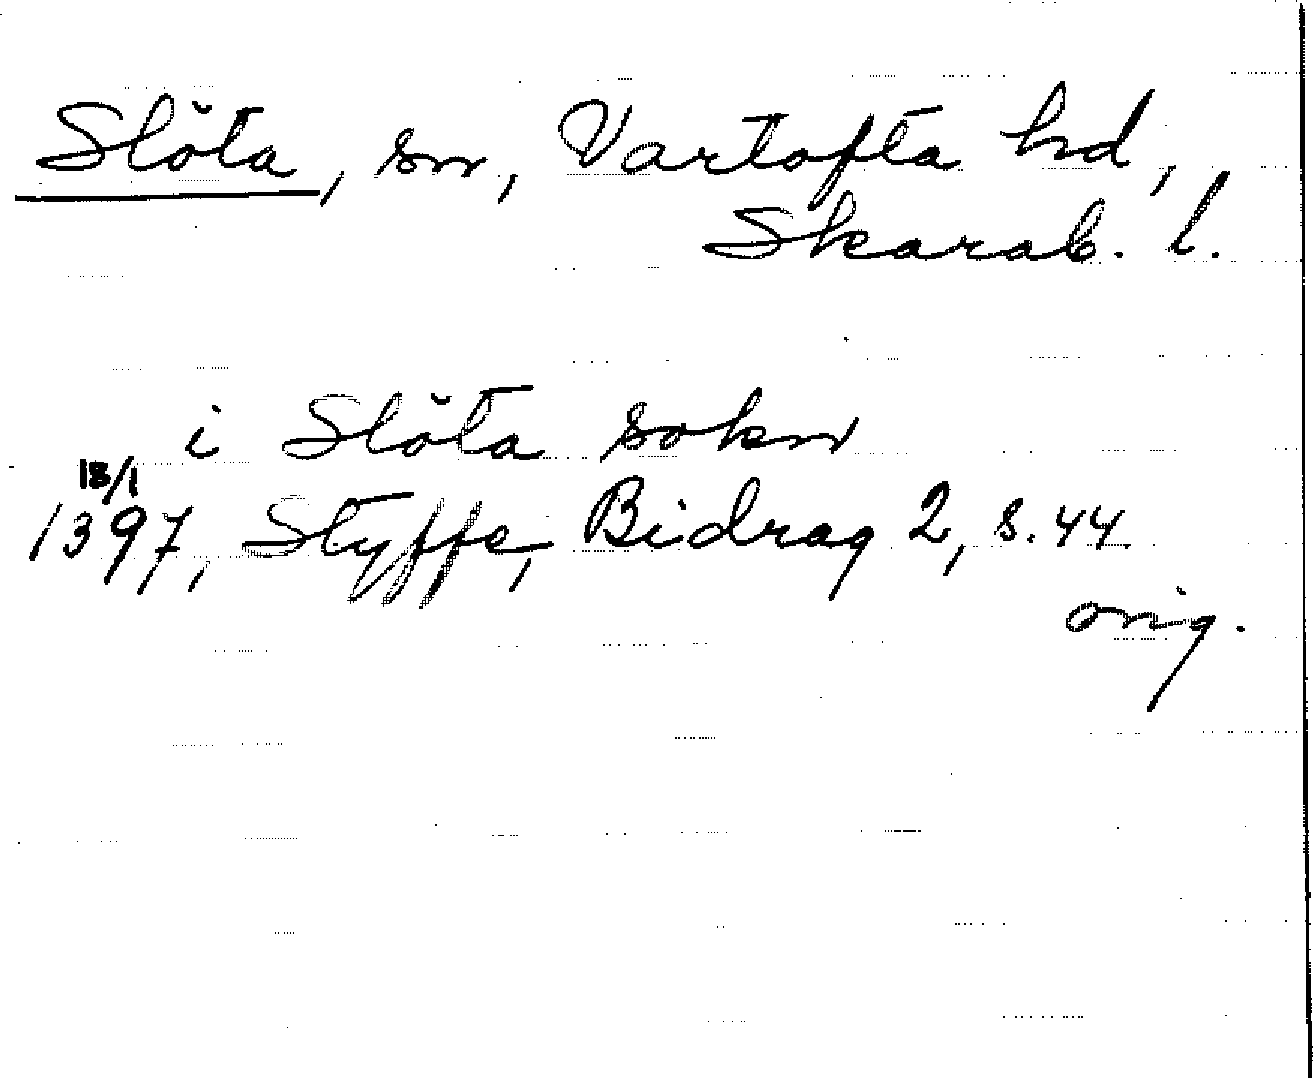 Slöta, sn, Vartofta hd,
Skarab. l.
i Slöta sokn
18/1
1397, Styffe, Bidrag 2, s. 44
orig.